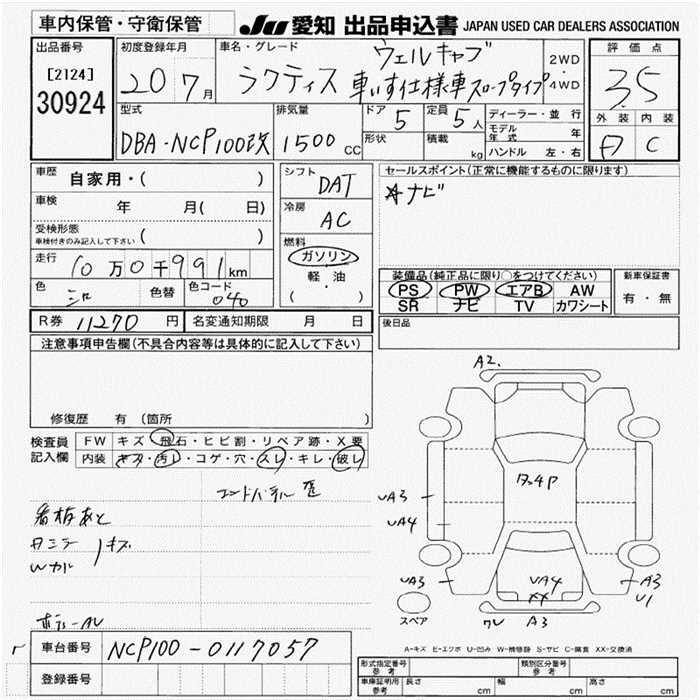 車内保管・守衛保管
JU 愛知 出品申込書 JAPAN USED CAR DEALERS ASSOCIATION
出品番号
[2124]
30924
初度登録年月
20 7月
車名・グレード
ウェルキャブ
ラクティス 車いす仕様車スロープタイプ
2WD
・
4WD
評価点
3.5
外装 内装
C
型式
DBA・NCP100改
排気量
1500 CC
ドア 5
形状
定員 5人
積載 kg
ディーラー・並行
モデル年式 年
ハンドル 左・右
車歴 自家用・( )
車検 年 月( 日)
受検形態
車検付きのみ記入して下さい ( )
走行 10万0千991km
色 シロ 色替
色コード 040
シフト DAT
冷房 AC
燃料
ガソリン
軽・油
( )
セールスポイント(正常に機能するものに限ります)
ナビ
装備品(純正品に限り○をつけてください)
PS PW エアB AW
SR ナビ TV カワシート
新車保証書
有・無
R券 11270 円 名変通知期限 月 日
後日品
注意事項申告欄(不具合内容等は具体的に記入して下さい)
修復歴 有 (箇所 )
検査員記入欄
FW キズ・飛石・ヒビ割・リペア跡・X要
内装 キズ・汚レ・コゲ・穴・スレ・キレ・破レ
看板あと
キズ
Wカド
A2.
UA3
UA4
UA3
UA4
XX
A3
U1
A3
スペア
A-キズ E-エクボ U-凹み W-補修跡 S-サビ C-腐食 XX-交換済
車台番号 NCP100-0117057
登録番号
形式指定番号
参考
類別区分番号
車庫証明用
参考
長さ cm 幅 cm 高さ cm